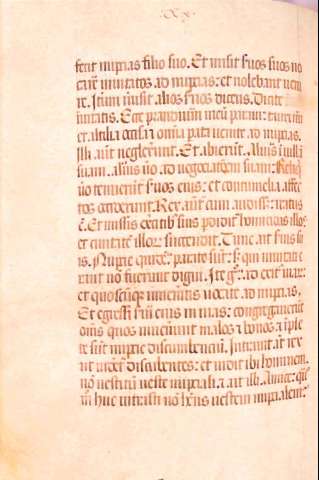 .xx.
fecit nuptias filio suo. Et misit s'uos suos uo
care inuitatos ad nuptias: et nolebant ueni
re. Itum misit alios s'uos dicens. Dicite
inuitatis. Ecce prandium meū paratū: tauri mei
et altilia occisa et omīa pata uenite ad nuptias.
Illi aut neglexerunt. Et abierunt. Alius ī uillā
suam. alius uo ad negociatōem suam: Reliq
uo tenuerunt s'uos eius: et contumelia affec
tos occiderunt. Rex aut cum audiss: iratus
ē. Et missis exercitib suis perdidit homicidas illos
et ciuitatē illor succendit. Tunc ait s'uis su
is. Nuptie quidē parate sūt: s qui inuitati
erant nō fuerunt digni. Ite g ad exit uiar:
et quoscūq inueneritis uocate ad nuptias.
Et egressi s'ui eius in uias: congregauerūt
omēs quos inuenerunt malos et bonos et īple
te sūt nuptie discumbenciū. Intrauit aūt rex
ut uideret discubentes: et uidit ibi hominem
nō uestitū ueste nuptiali. et ait illi. Amice: quō
huc intrasti nō hn̄s uestem nuptialem: